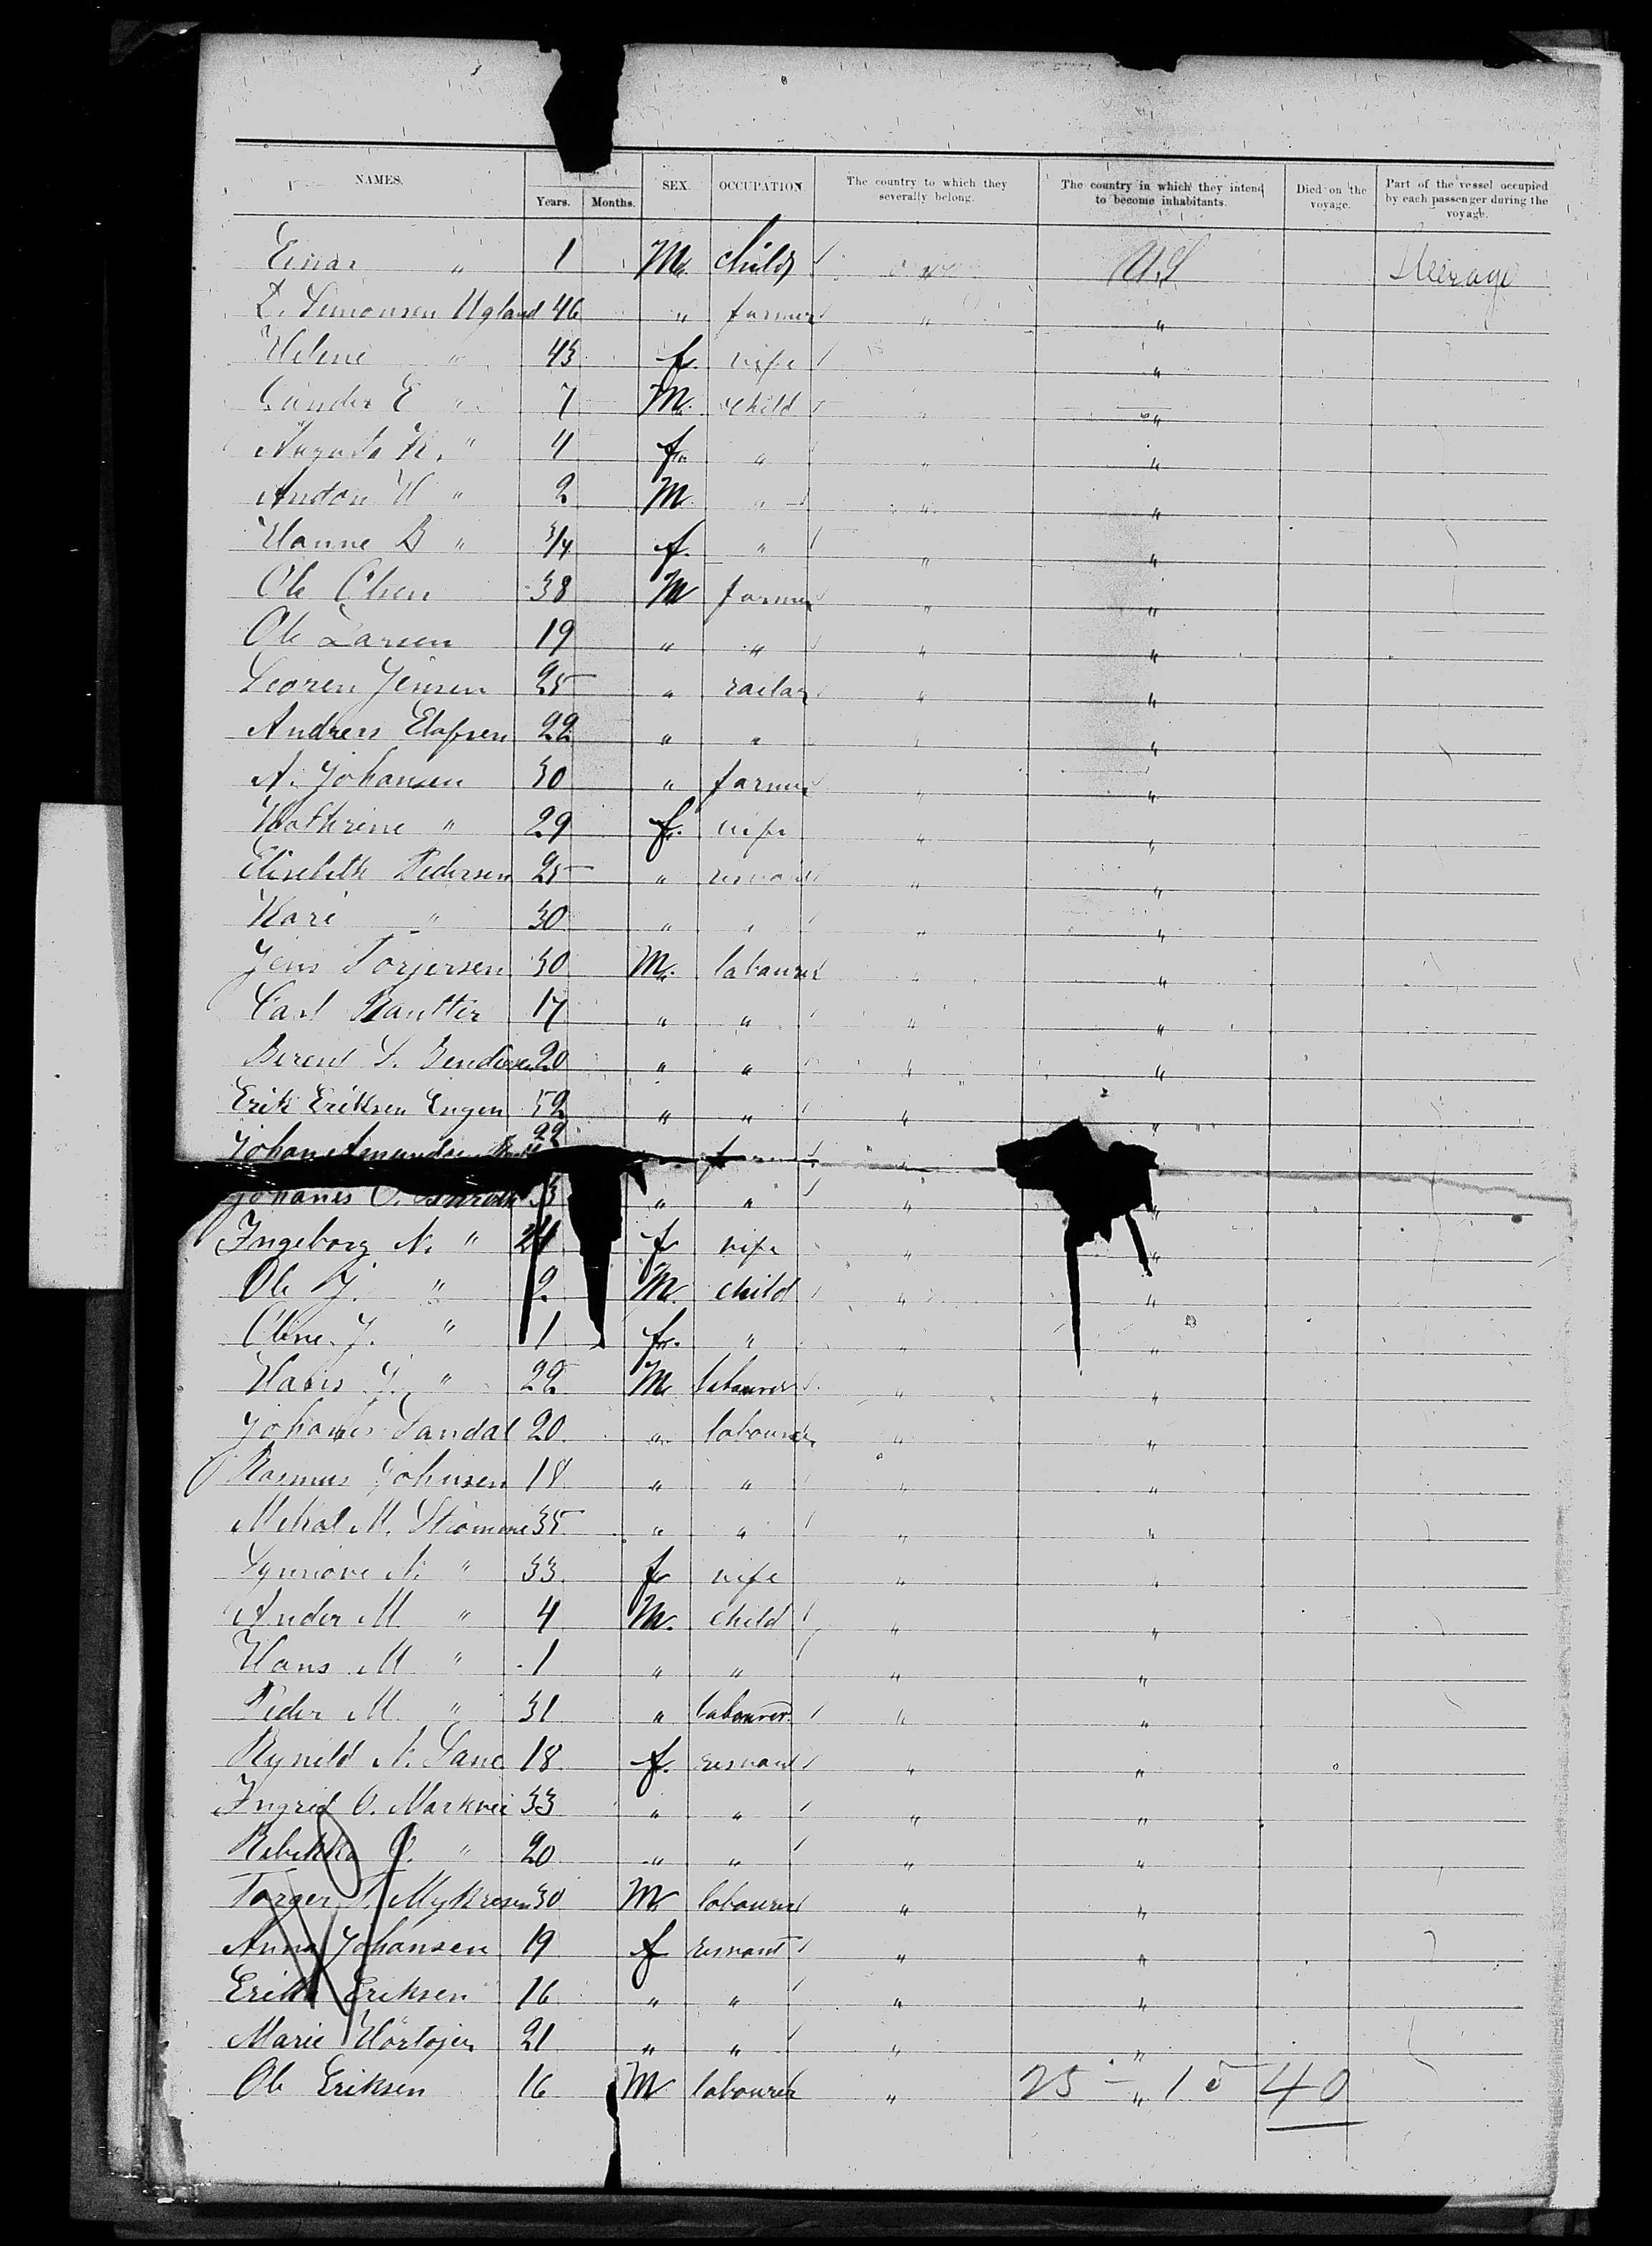 NAMES. Years. Months. SEX. OCCUPATION The country to which they severally belong. The country in which they intend to become inhabitants. Died on the voyage. Part of the vessel occupied by each passenger during the voyage.
Einar " 1 M. child U.S Steerage
Simonsen Ugland 46 " farmer " "
Helene " 43 f. wife "
Gunder E " 7 M. child " "
Augusta K. " 4 f. " " "
Anton H " 2 M. " " "
Hanne B " 3/4 f. " " "
Ole Olsen 38 M farmer " "
Ole Larsen 19 " " " "
Sören Jensen 25 " sailor " "
Andreas Elefsen 22 " " " "
A. Johansen 30 " farmer " "
Kathrine " 29 f. wife " "
Elisebeth Pedersen 25 " servant " "
Kari " 30 " " " "
Jens Torjersen 30 M. labourer " "
Carl 17 " " " "
Berent S. Bendixen 20 " " " "
Erik Eriksen Engen 52 " " " "
Johan Amundsen 22 farmer "
Johanes O. " " " "
Ingeborg N. " 24 f wife " "
Ole J. " 2 M. child " "
Oline J. " 1 f. " " "
Hans J. " 22 M labourer " "
Johanes Sandal 20 " labourer " "
Rasmus Johnsen 18 " " " "
Mikal M. Strömme 35 " " " "
Synnöve N. " 33 f wife " "
Ander M. " 4 M. child " "
Hans M " 1 " " " "
Peder M. " 31 " labourer " "
Rynild N. Sane 18 f. servant " "
Ingrid O. Markvei 33 " " " "
Rebekka O. " 20 " " " "
Torger T. 30 M labourer " "
Anna Johansen 19 f servant " "
Erika Eriksen 16 " " " "
Marie 21 " " " "
Ole Eriksen 16 M labourer " 25 - " 15 40